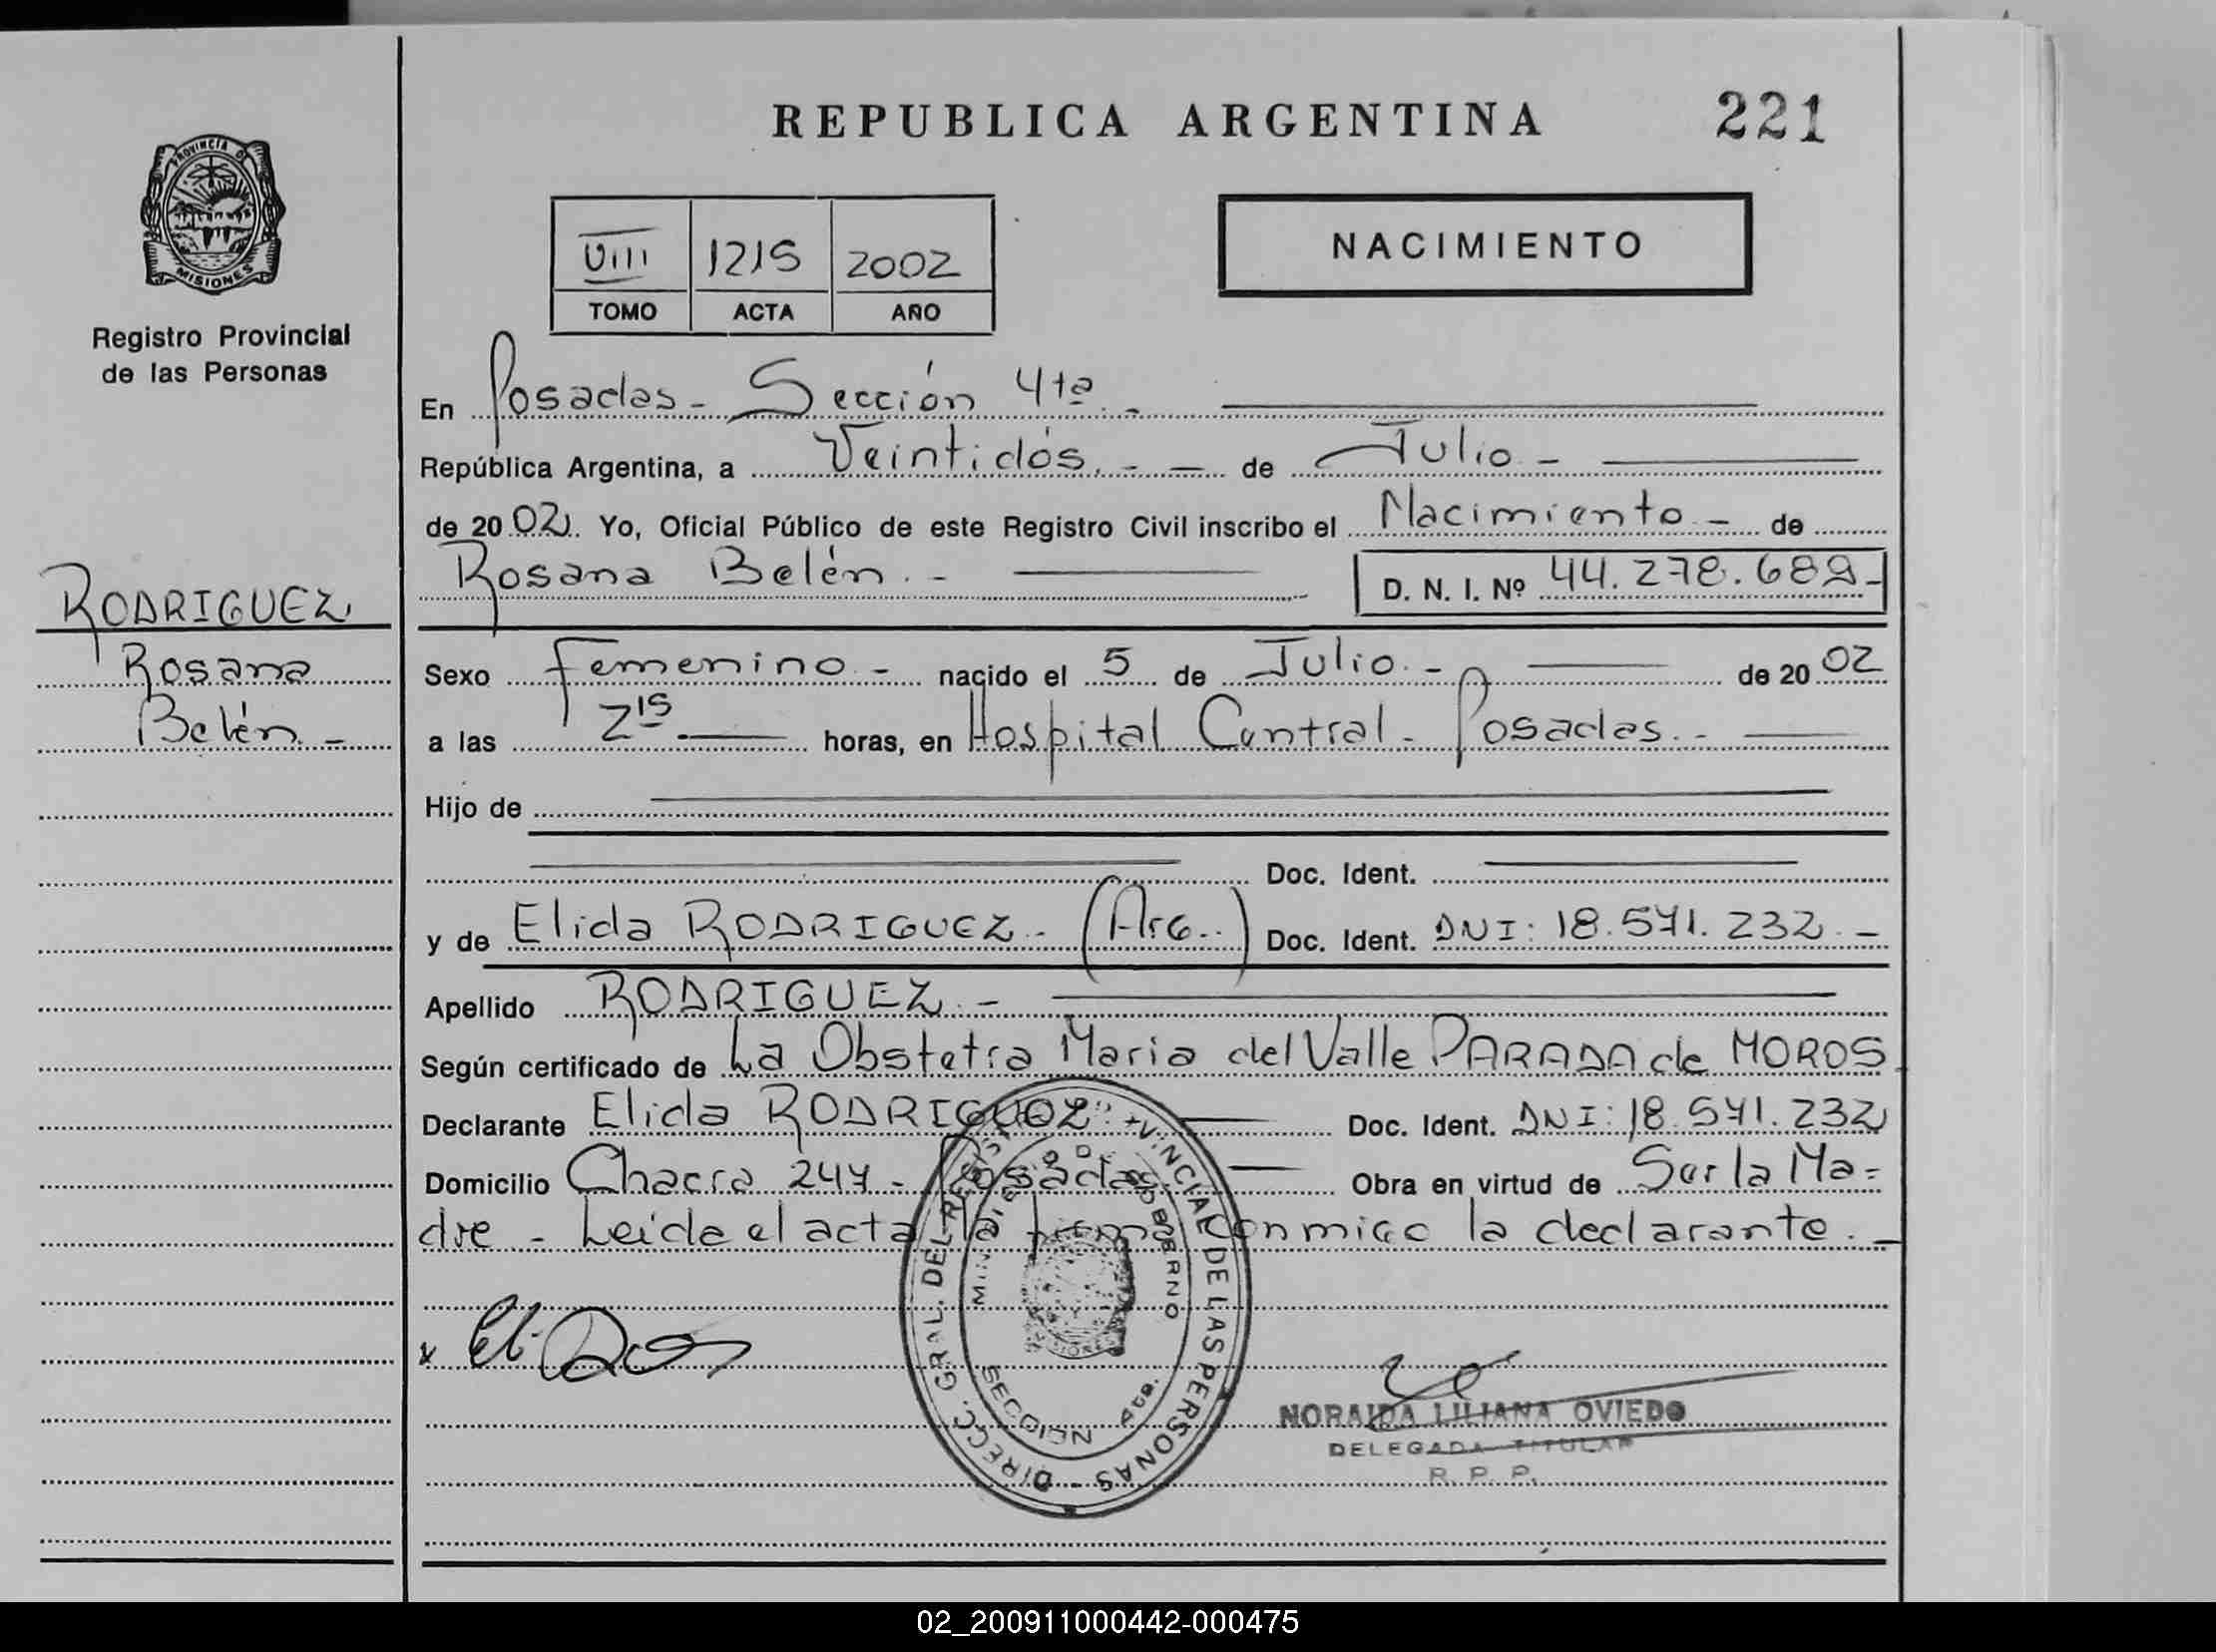 REPUBLICA ARGENTINA
221
PROVINCIA DE
MISIONES
Registro Provincial
de las Personas
VIII 1215 2002
TOMO ACTA AÑO
NACIMIENTO
En Posadas - Sección 4ta. -
República Argentina, a Veintidós. - - de Julio -
de 20 02. Yo, Oficial Público de este Registro Civil inscribo el Nacimiento - de
Rosana Belén. - D. N. I. Nº 44.278.689-
RODRIGUEZ
Rosana
Belén. -
Sexo Femenino - nacido el 5 de Julio. - de 20 02
a las 2 15. horas, en Hospital Central - Posadas. -
Hijo de
Doc. Ident.
y de Elida RODRIGUEZ - (Arg.) Doc. Ident. DNI: 18.541.232. -
Apellido RODRIGUEZ. -
Según certificado de La Obstetra Maria del Valle PARADA de MOROS.
Declarante Elida RODRIGUEZ Doc. Ident. DNI: 18.541.232
Domicilio Chacra 247 - Posadas Obra en virtud de Ser la Ma=
dre - Leida el acta la firma conmigo la declarante. -
DIRECC. GRAL. DEL REGIST VINCIAL DE LAS PERSONAS -
GOBIERNO
SECCION 4ta.
NORAIDA LILIANA OVIEDO
DELEGADA TITULAR
R. P. P.
02_200911000442-000475